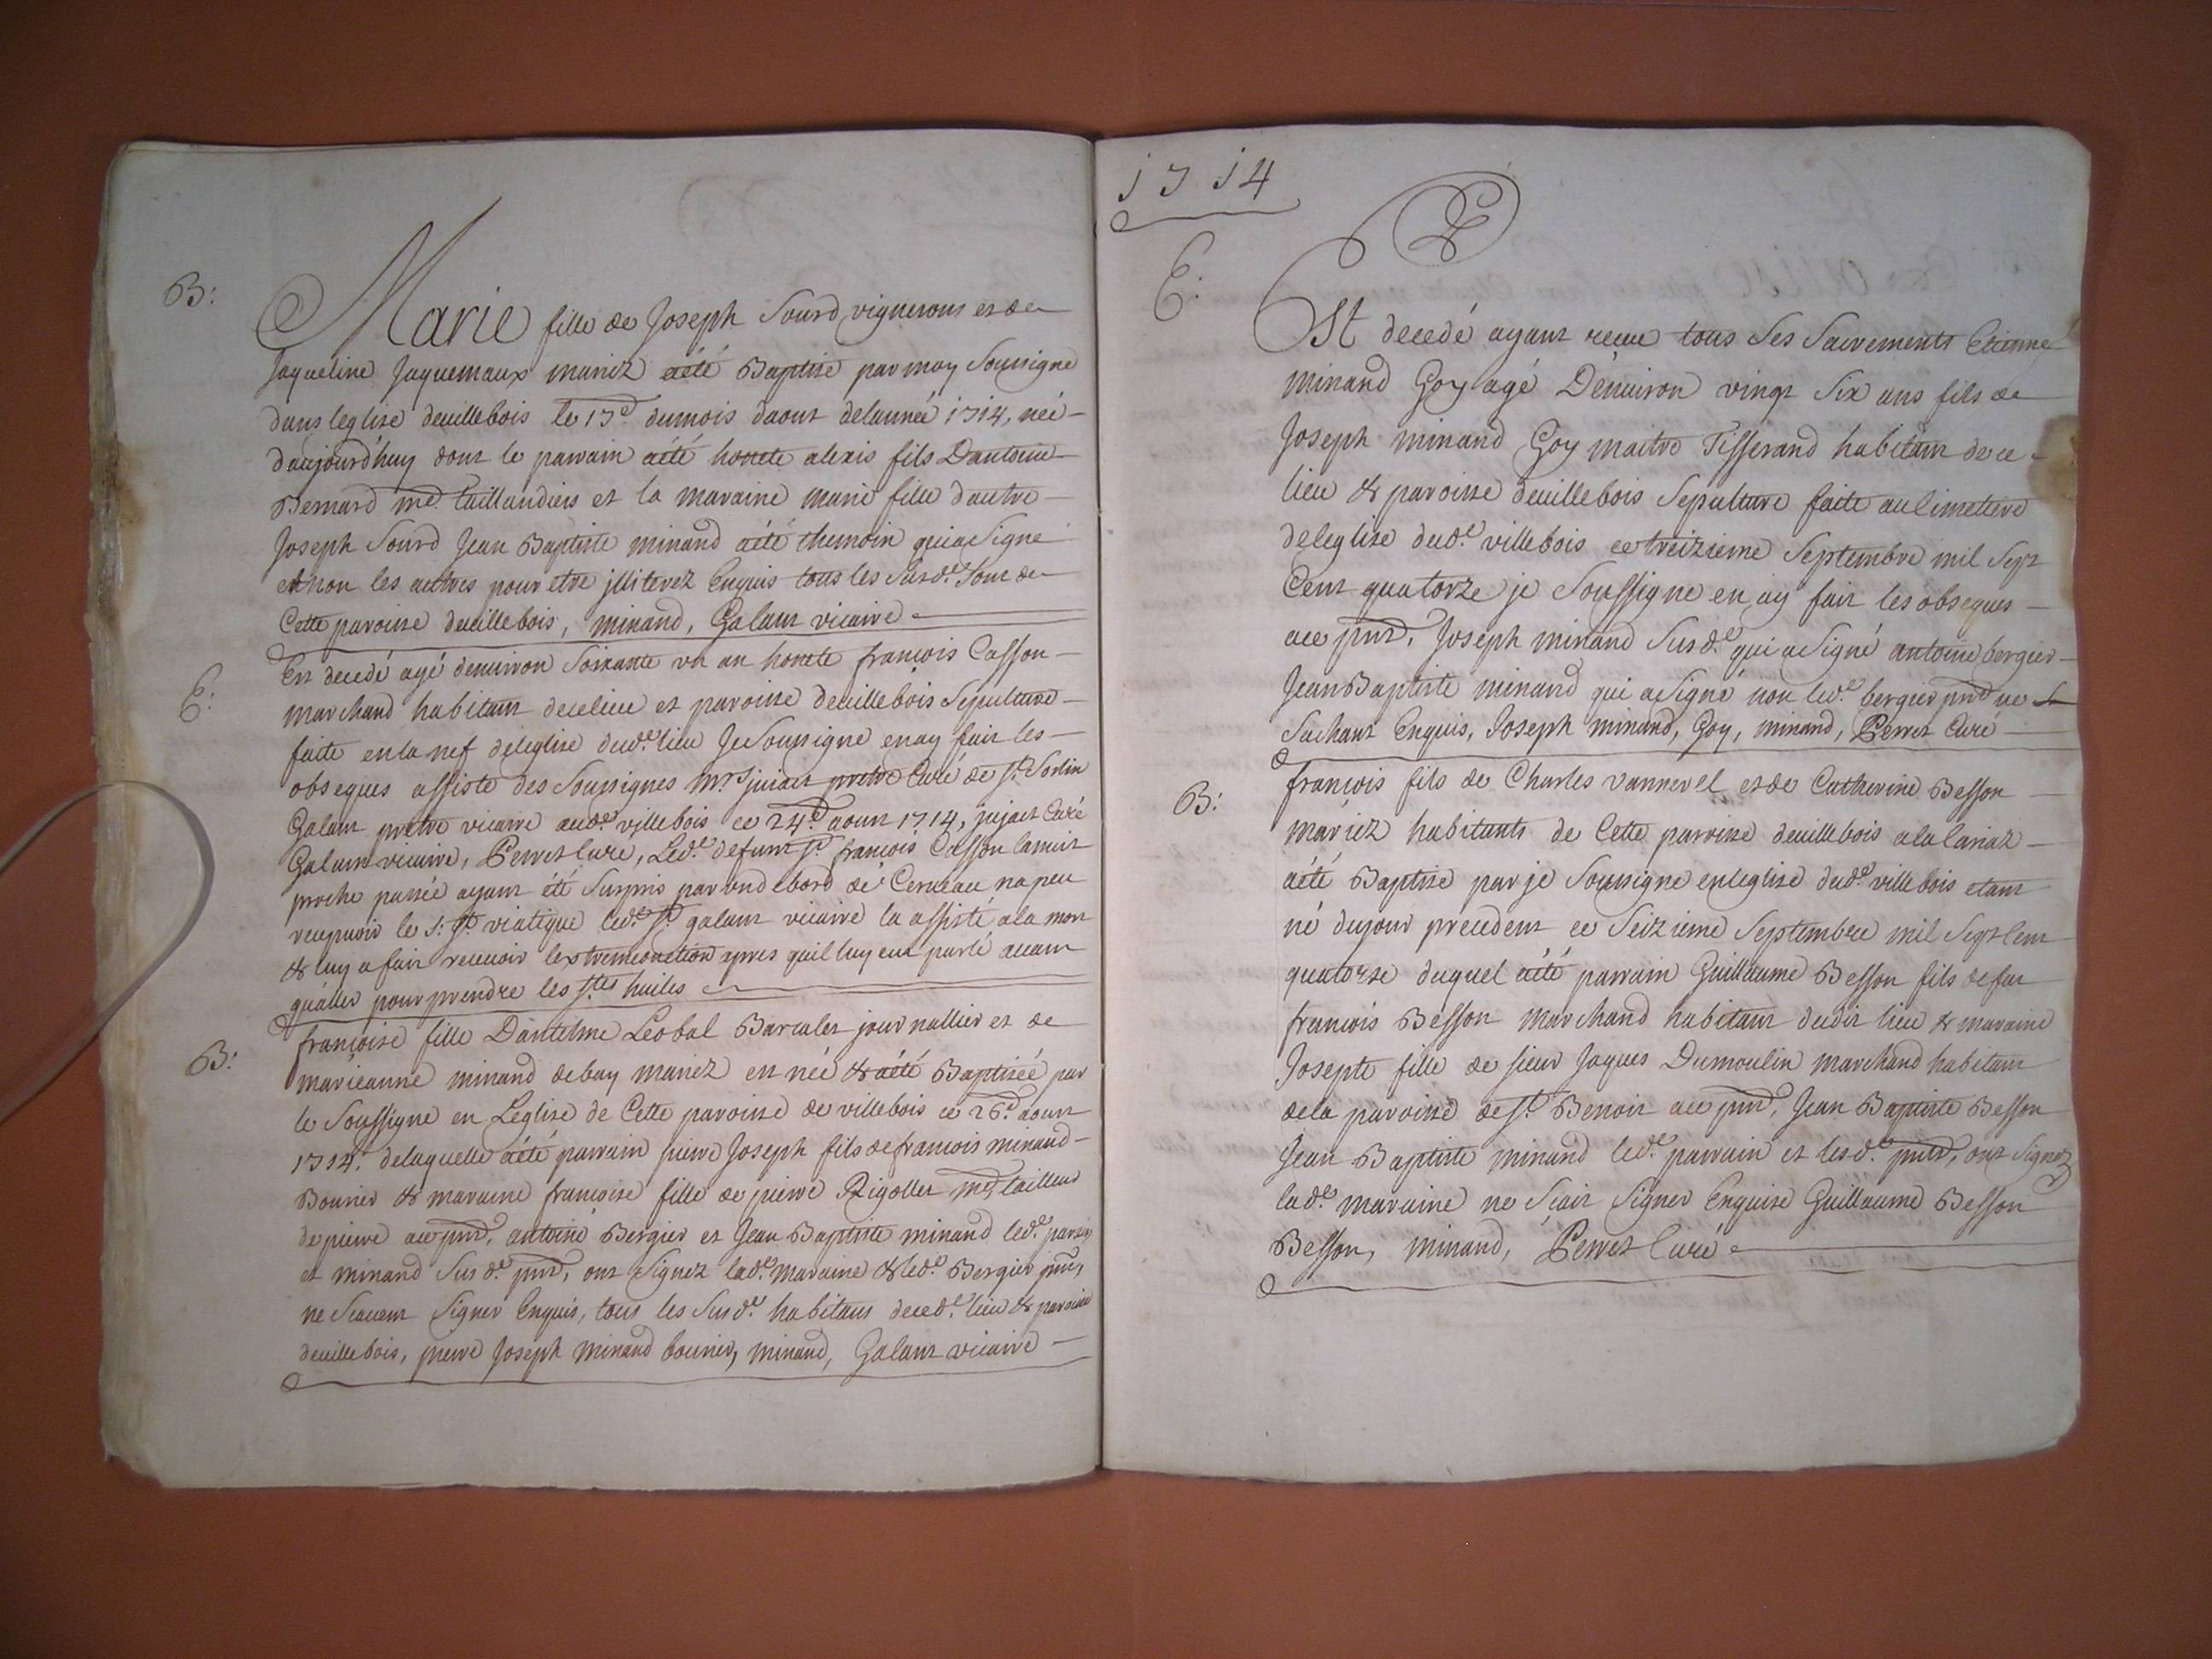 B:
Marie fille de Joseph Sourd vignerons et de
Jaqueline Jaquemaux mariez aété Baptise par moy Soussigne
dans leglise deuillebois le 17e dumois daout delannée 1714, neé
daujourdhuy dont le parrain aété honete alexis fils Dantoine
Bernard md taillandiers et la maraine marie fille dautre
Joseph Sourd Jean Baptiste minand aété themoin quia Signé
et non les autres pour etre jlliterez Enquis tous les Susd.e Sont de
Cette paroisse deuillebois, minand, Galant vicaire
E:
Est decedé agé denuiron Soixante vn an honete francois Casson
marchand habitant decelieu et paroisse deuillebois Sepulture
faite enla nef deleglise dud.e lieu Je Soussigne enay fait les
obseques assiste des Soussignes Mrs jujait pretre Curé de St. Sorlin
Galant pretre vicaire aud.e villebois ce 24.e aout 1714, jujait Curé
Galant vicaire, Perret Cure, Led.e defunt Sr. francois Casson lanuit
proche passée ayant été Surpris par vndebord de Cerueau napeu
receuoir le S: St. viatique led.e Sr. galant vicaire la assisté ala mort
& luy a fait receuoir lextremeonction apres quil luy eut parlé auant
qualler pour prendre les Stes huiles
B:
francoise fille Dantelme Leobal Barculet journallier et de
marieanne minand debay mariez est neé & aété Baptiseé par
le Soussigne en Leglise de Cette paroisse de villebois ce 26.e aout
1714. delaquelle aété parrain pierre Joseph fils defrancois minand
Bourier & maraine francoise fille de pierre Rigollet md tailleur
de pierre ace pnt, antoine Bergier et Jean Baptiste minand led.e parrin
et minand Sus d.e pnt, ont Signez lad.e maraine & led.e Bergier pnt,
ne Scauent Signer Enquis, tous les Susd.e habitans deced.e lieu & paroisse
deuillebois, pierre Joseph minand bourier, minand, Galant vicaire
1714
E:
Est decedé ayant receu tous Ses Sacrements Etienne
minand Goy agé Denuiron vingt Six ans fils de
Joseph minand Goy maitre Tisserand habitant de ce
lieu & paroisse deuillebois Sepulture faite au Cimetiere
deleglise dud.e villebois ce treizieme Septembre mil Sept
Cent quatorze je Soussigne en ay fait les obseques
ace pnt, Joseph minand Susd.e qui a Signé antoine bergier
Jean Baptiste minand qui a Signé non led.e bergier pnt ne
Sachant Enquis, Joseph minand, Goy, minand, Perret Curé
B:
francois fils de Charles vannerel et de Catherine Besson
mariez habitants de Cette parroisse deuillebois alalaniaz
aété Baptise par je Soussigne enleglise dud.e villebois etant
né dujour precedent ce Seizieme Septembre mil Sept Cent
quatorse duquel aété parrain Guillaume Besson fils defeu
francois Besson marchand habitant dudit lieu & maraine
Josepte fille de sieur Jaques Dumoulin marchand habitant
dela paroisse de St. Benoit ace pnt, Jean Baptiste Besson
Jean Baptiste minand led.e parrain et lesd.e pnts, ont Signez
lad.e maraine ne Scait Signer Enquise Guillaume Besson
Besson, minand, Perret Curé